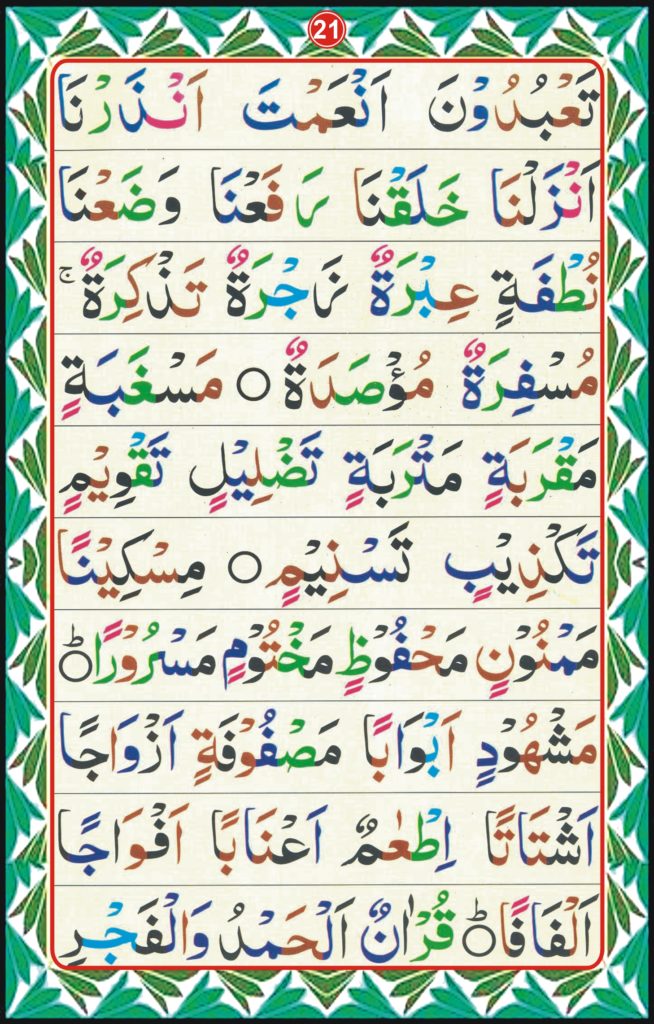 21
تَعْبُدُوْنَ اَنْعَمْتَ اَنْذَرْنَا
اَنْزَلْنَا خَلَقْنَا رَفَعْنَا وَضَعْنَا
نُطْفَةٍ عِبْرَةٌ زَجْرَةٌ تَذْكِرَةٌ ۚ
مُسْفِرَةٌ مُؤْصَدَةٌ ○ مَسْغَبَةٍ
مَقْرَبَةٍ مَتْرَبَةٍ تَضْلِيْلٍ تَقْوِيْمٍ
تَكْذِيْبٍ تَسْنِيْمٍ ○ مِسْكِيْنًا
مَمْنُوْنٍ مَحْفُوْظٍ مَخْتُوْمٍ مَسْرُوْرًا ○ؕ
مَشْهُوْدٍ اَبْوَابًا مَصْفُوْفَةٍ اَزْوَاجًا
اَشْتَاتًا اِطْعٰمٌ اَعْنَابًا اَفْوَاجًا
اَلْفَافًا ○ؕ قُرْاٰنٌ اَلْحَمْدُ وَالْفَجْرِ